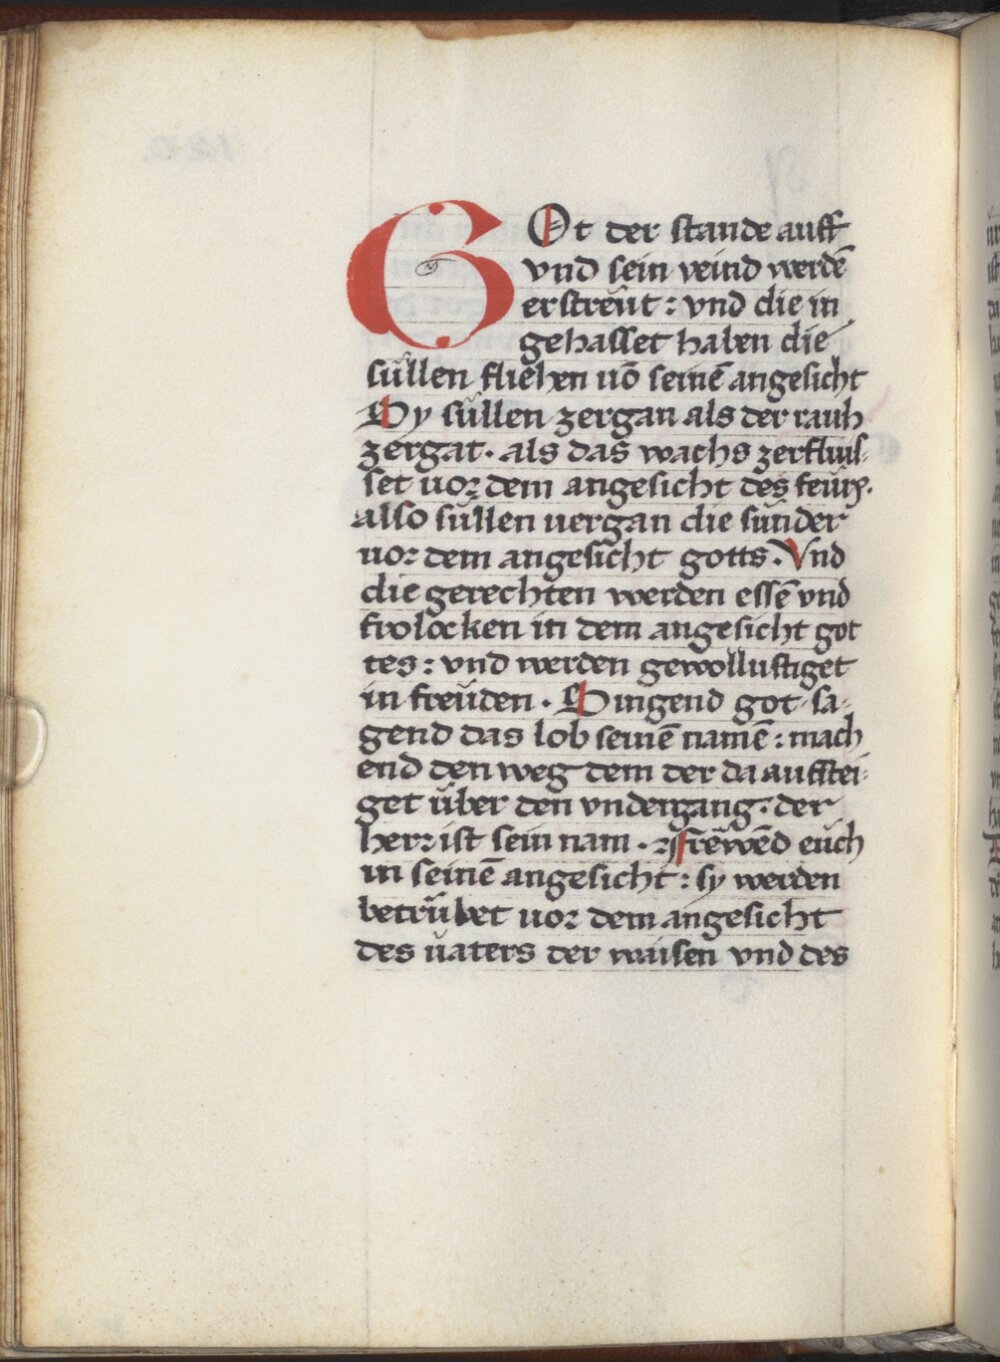 GOt der stande auff
vnd sein veind werdē
erstreüt : vnd die in
gehasset haben die
süllen fliehen uō seinē angesicht
Sy süllen zergan als der rauh
zergat · als das wachs zerfluis-
set uor dem angesicht des feürs ·
also süllen uergan die sünder
uor dem angesicht gotts · Vnd
die gerechten werden essē vnd
frolocken in dem angesicht got
tes : vnd werden gewollustiget
in freüden · Singend got · sa-
gend das lob seinē namē : mach
end den weg dem der da auffstei-
get über den vndergang · der
herr ist sein nam · Frewēd eüch
in seinē angesicht : sy werden
betrübet uor dem angesicht
des uaters der waisen vnd des